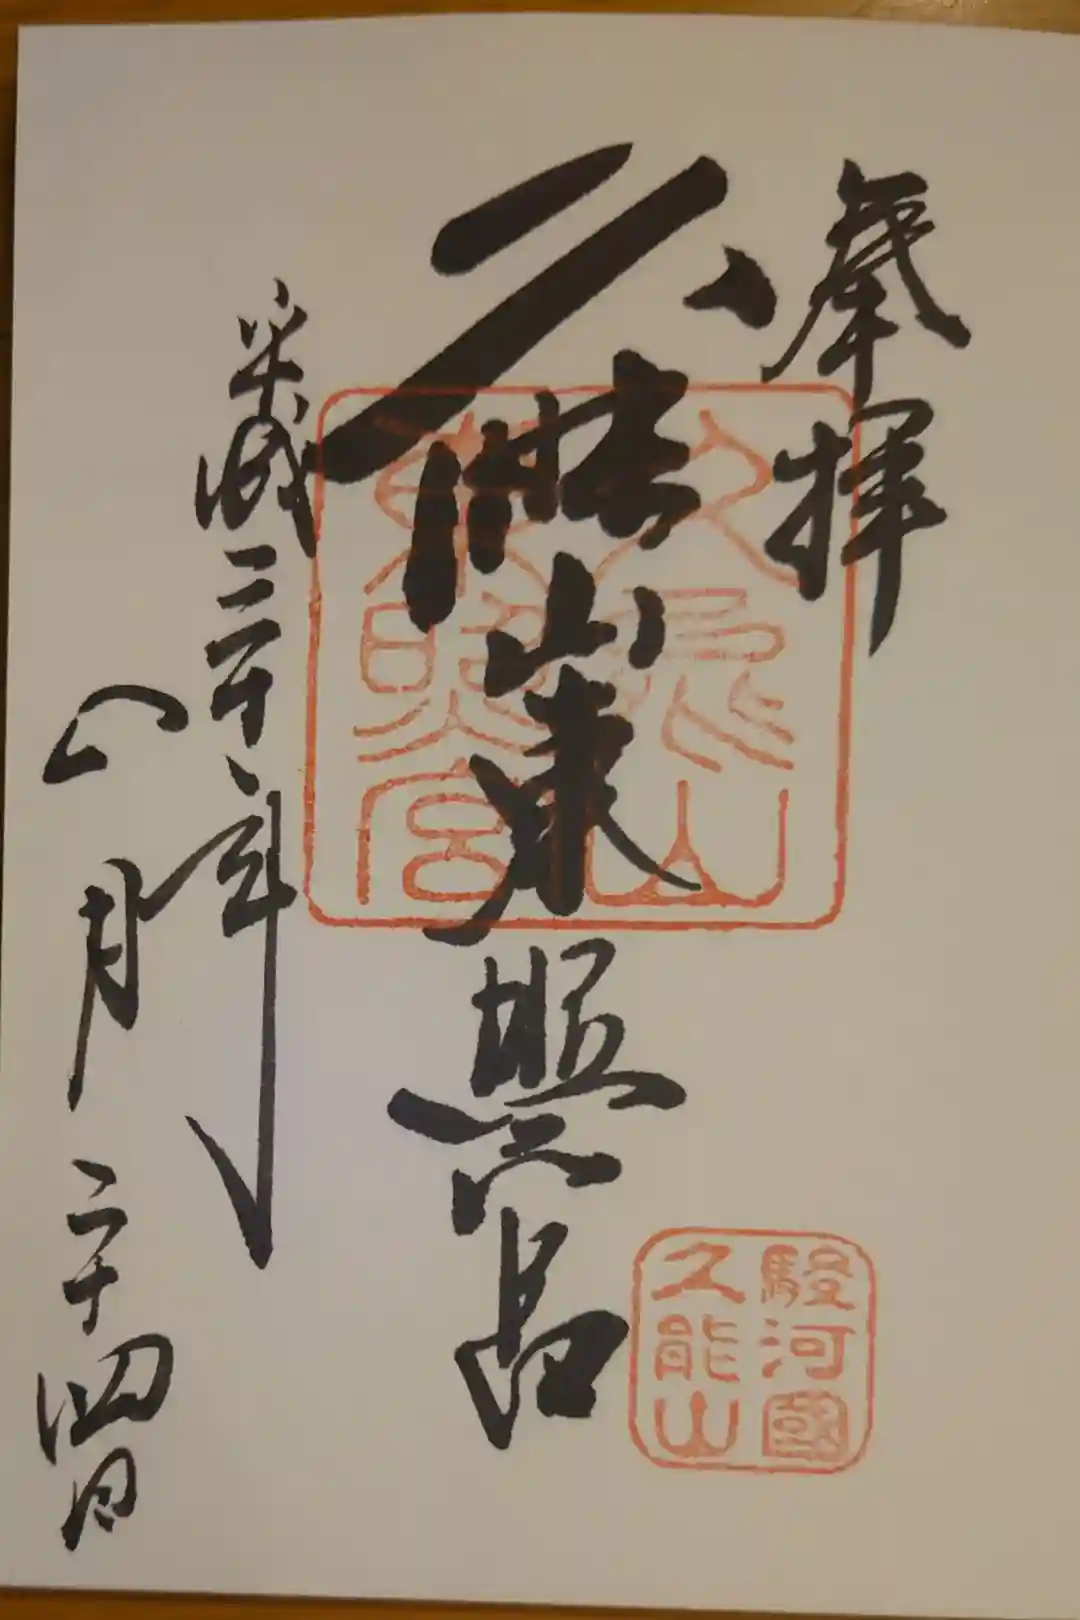 奉拝
久能山東照宮
平成三十年
八月二十四日
久能山
東照宮
駿河國
久能山